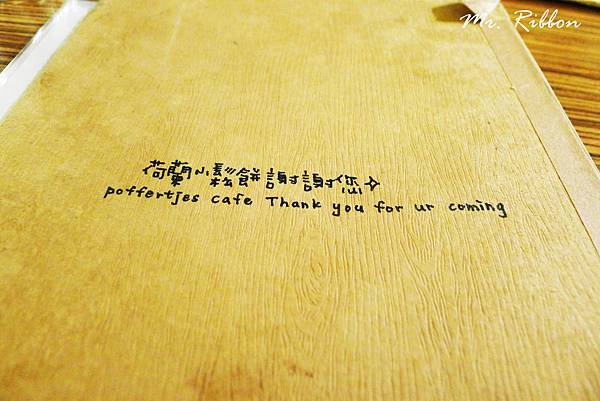 Mr. Ribbon
荷蘭小鬆餅謝謝您✧
poffertjes cafe Thank you for ur coming